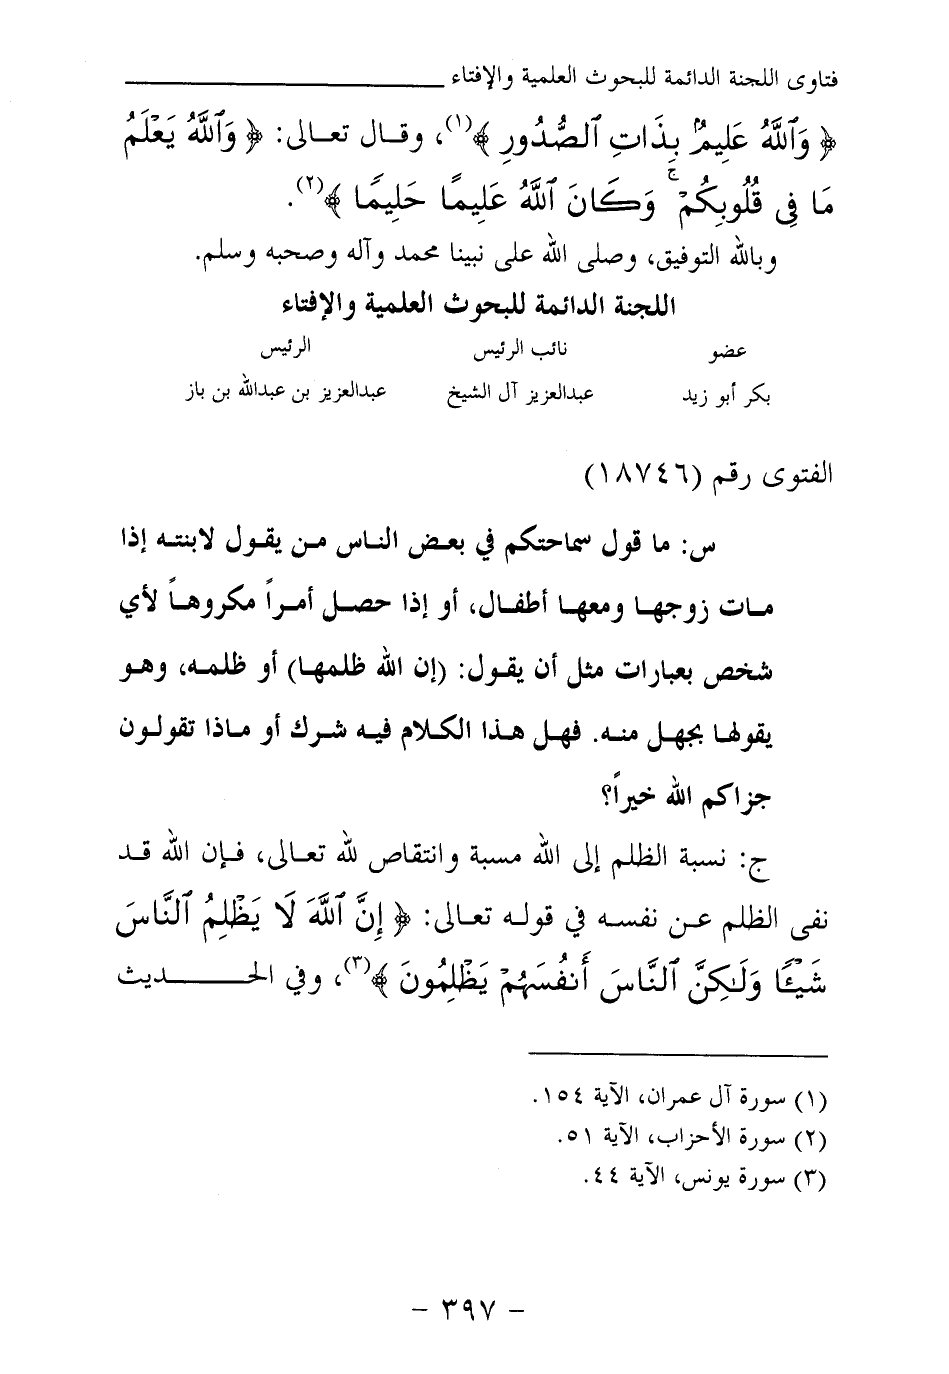 فتاوى اللجنة الدائمة للبحوث العلمية والإفتاء
﴿ وَٱللَّهُ عَلِيمٌۢ بِذَاتِ ٱلصُّدُورِ ﴾(١)، وقال تعالى: ﴿ وَٱللَّهُ يَعْلَمُ
مَا فِى قُلُوبِكُمْ ۚ وَكَانَ ٱللَّهُ عَلِيمًا حَلِيمًا ﴾(٢).
وبالله التوفيق، وصلى الله على نبينا محمد وآله وصحبه وسلم.
اللجنة الدائمة للبحوث العلمية والإفتاء
عضو نائب الرئيس الرئيس
بكر أبو زيد عبدالعزيز آل الشيخ عبدالعزيز بن عبدالله بن باز
الفتوى رقم (١٨٧٤٦)
س: ما قول سماحتكم في بعض الناس من يقول لابنته إذا
مات زوجها ومعها أطفال، أو إذا حصل أمراً مكروهاً لأي
شخص بعبارات مثل أن يقول: (إن الله ظلمها) أو ظلمه، وهو
يقولها بجهل منه. فهل هذا الكلام فيه شرك أو ماذا تقولون
جزاكم الله خيراً؟
ج: نسبة الظلم إلى الله مسبة وانتقاص لله تعالى، فإن الله قد
نفى الظلم عن نفسه في قوله تعالى: ﴿ إِنَّ ٱللَّهَ لَا يَظْلِمُ ٱلنَّاسَ
شَيْـًٔا وَلَـٰكِنَّ ٱلنَّاسَ أَنفُسَهُمْ يَظْلِمُونَ ﴾(٣)، وفي الحـــديث
(١) سورة آل عمران، الآية ١٥٤.
(٢) سورة الأحزاب، الآية ٥١.
(٣) سورة يونس، الآية ٤٤.
- ٣٩٧ -